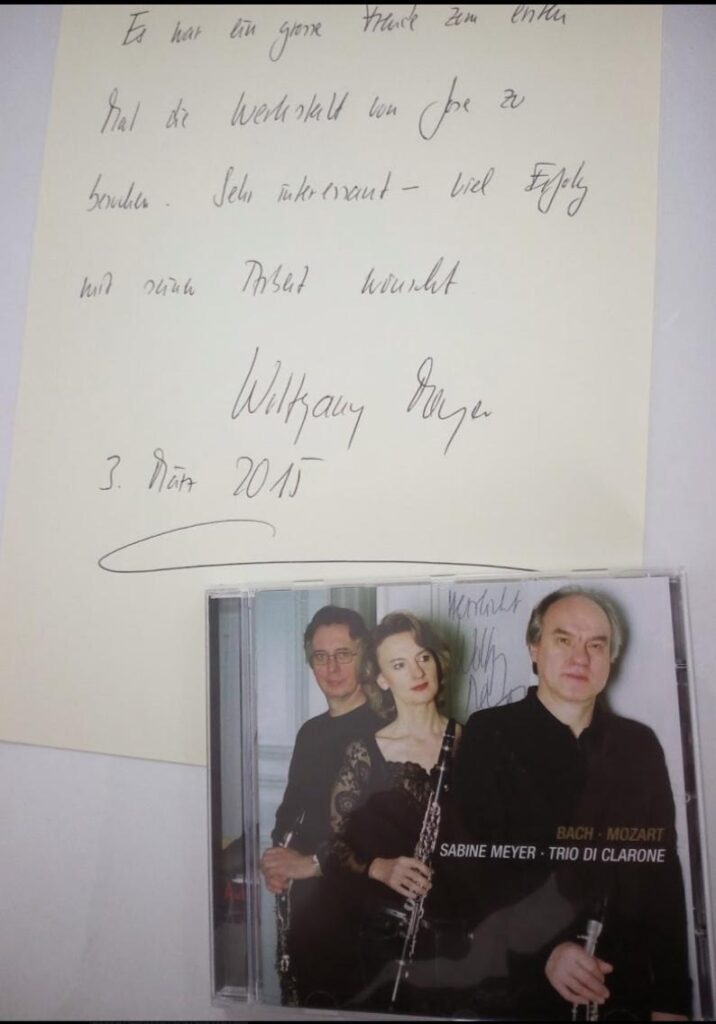 Es war ein grosse Freude zum ersten
Mal die Werkstatt von Jose zu
besuchen. Sehr interessant – viel Erfolg
mit seiner Arbeit wünscht
Wolfgang Meyer
3. März 2015
Herzlichst
BACH · MOZART
SABINE MEYER · TRIO DI CLARONE